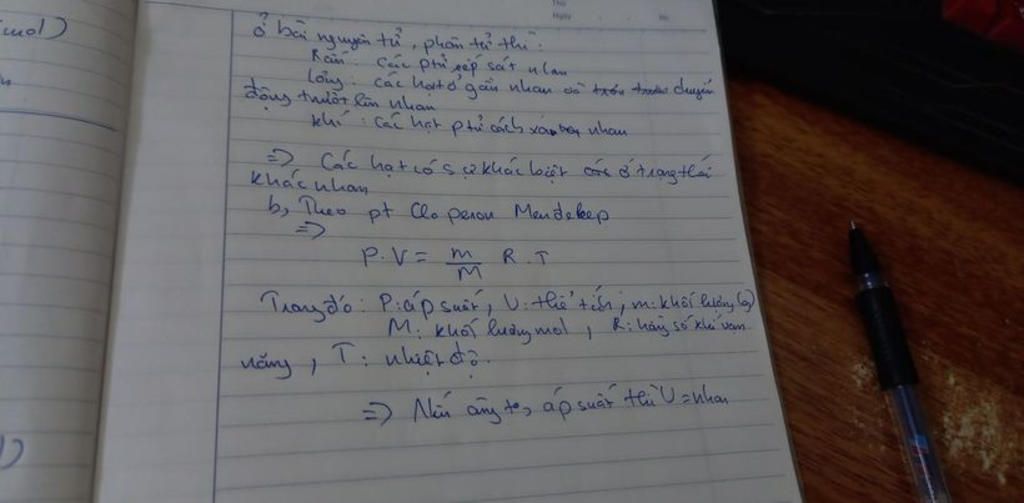 mol)
Ngày
ở bài nguyên tử, phân tử thì:
Rắn: các ptử xếp sát nhau
lỏng: các hạt ở gần nhau và chuyển
động trượt lên nhau
khí: các hạt ptử cách xa nhau
=> Các hạt có sự khác biệt ở trạng thái
khác nhau
b, Theo pt Cla peron Mendeleep
=>
P.V = m/M R.T
Trong đó: P: áp suất, V: thể tích, m: khối lượng (g)
M: khối lượng mol, R: hằng số khí vạn
năng, T: nhiệt độ.
=> Nếu cùng to, áp suất thì V = nhau